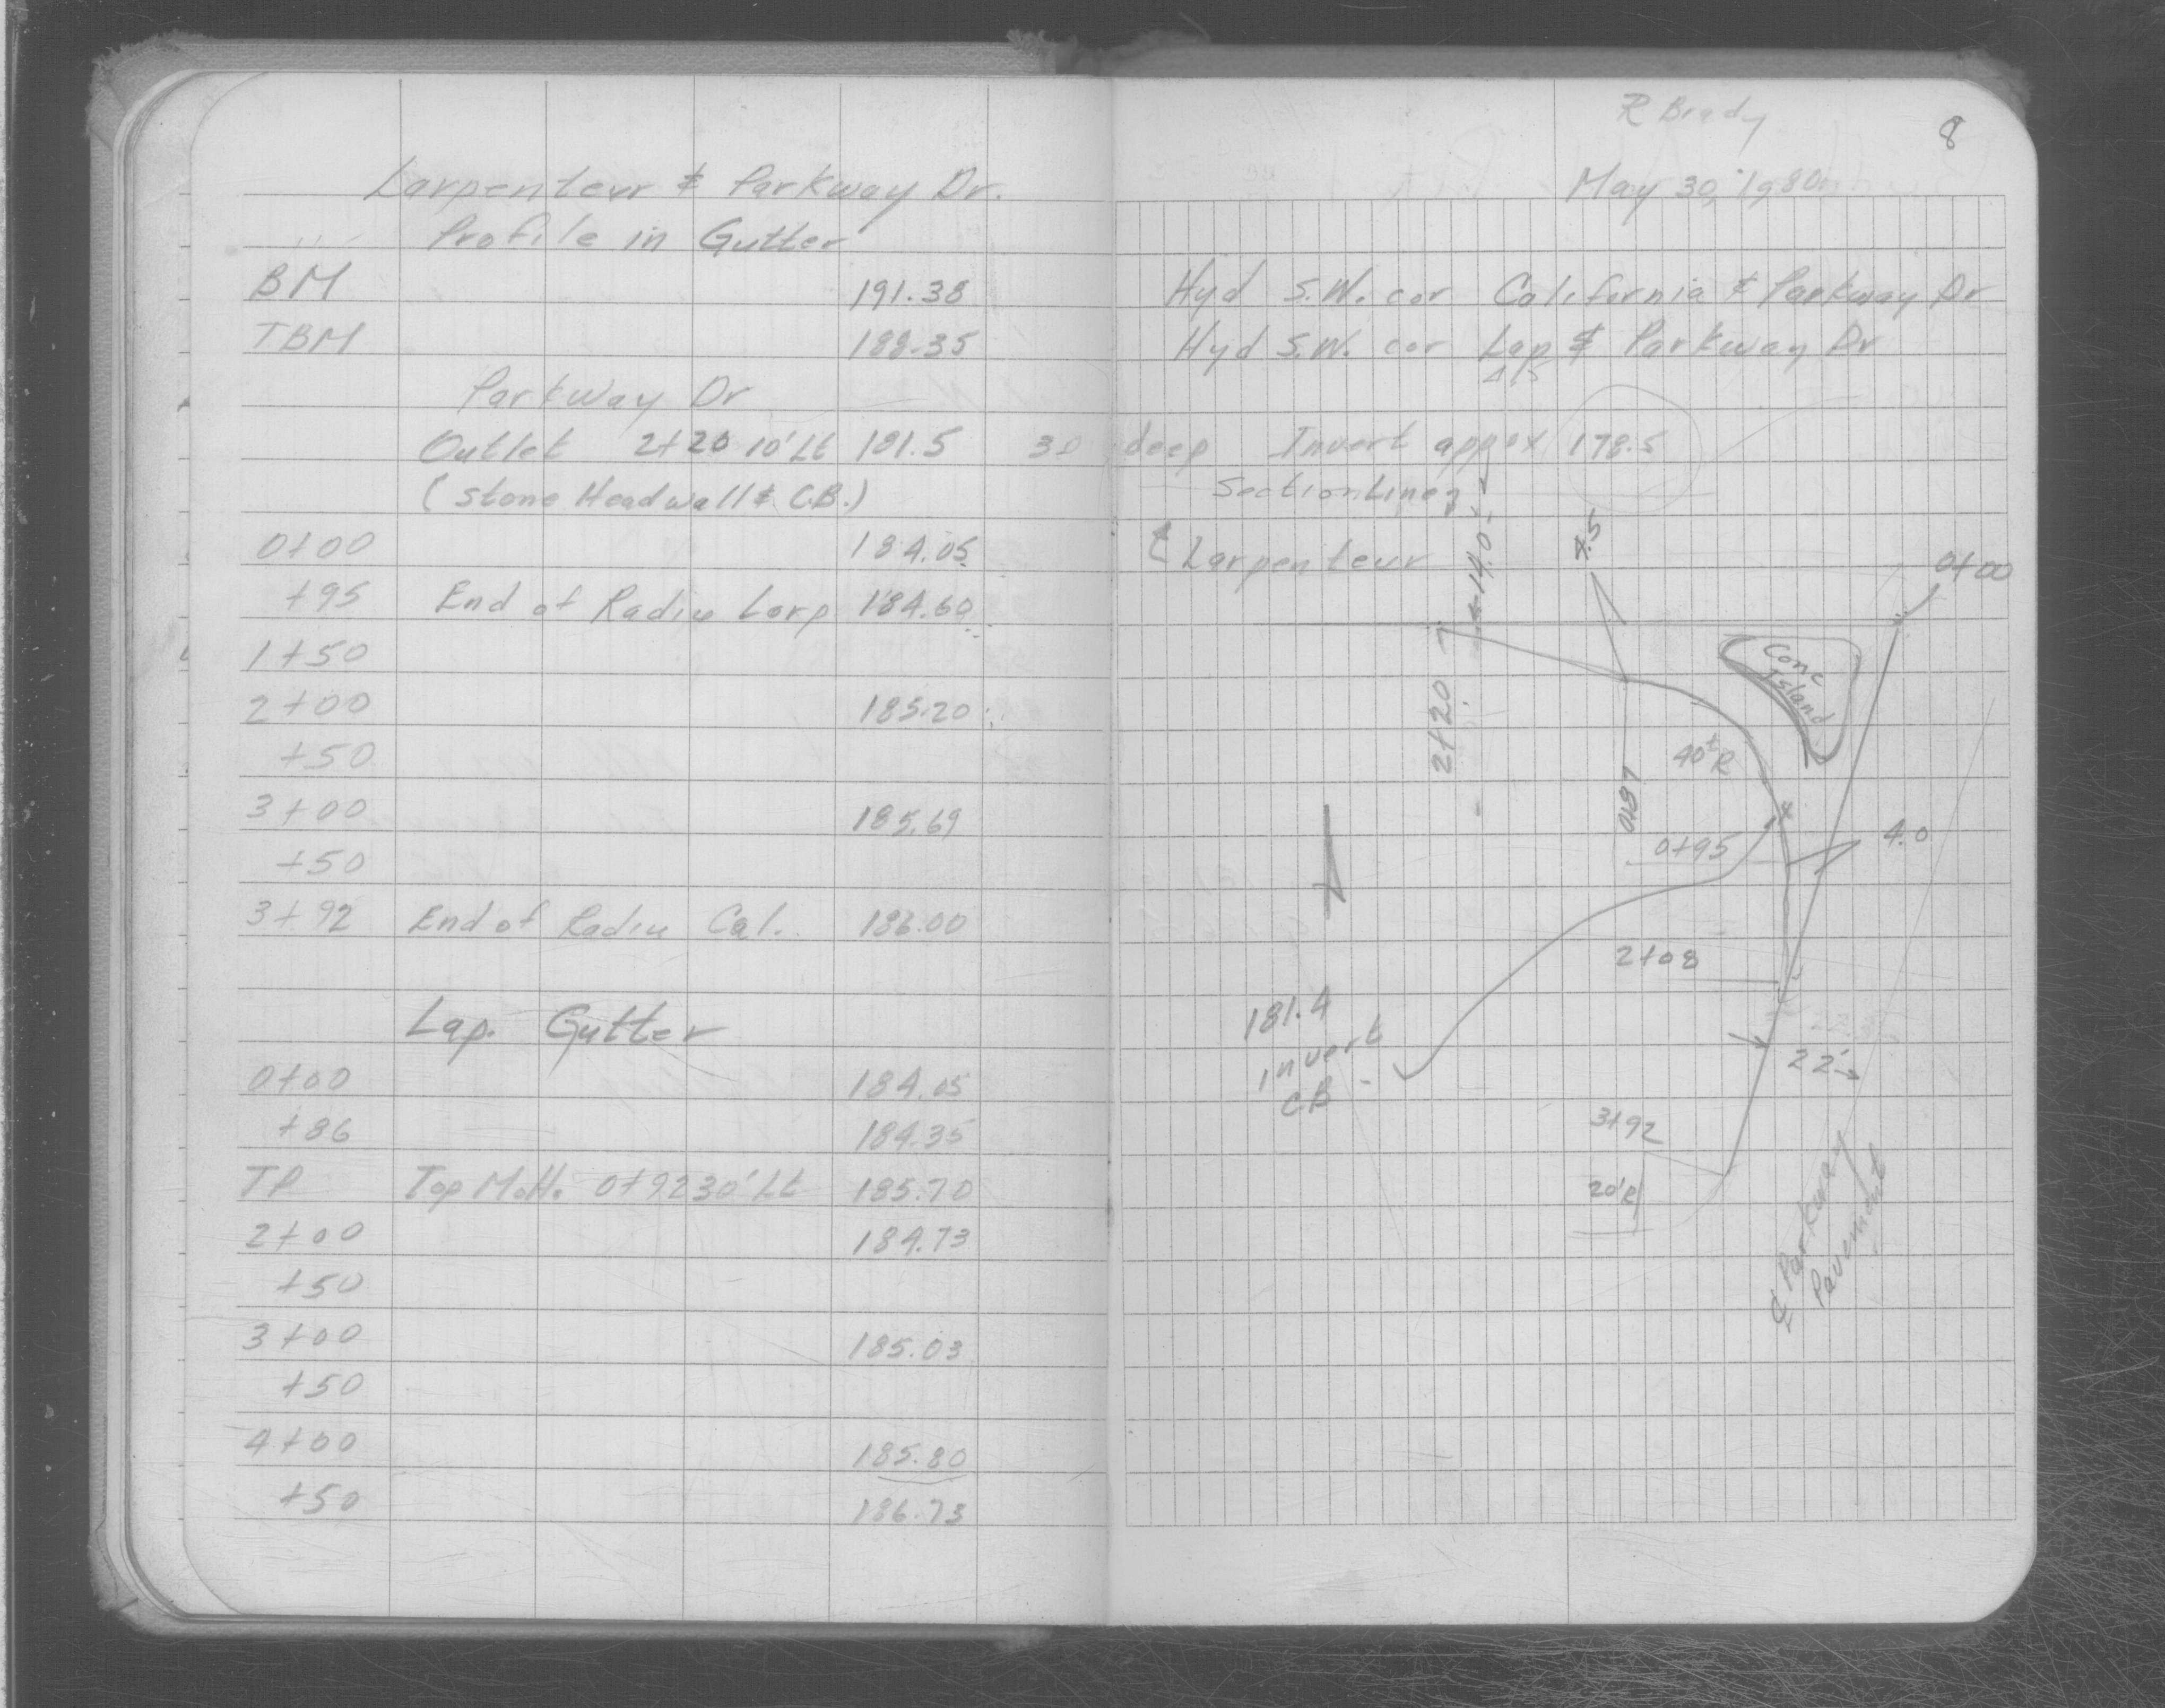 Larpenteur & Parkway Dr.
Profile in Gutter
BM 191.38
TBM 188.35
Parkway Dr
Outlet 2+20 10' Lt 181.5
(Stone Headwall & C.B.)
0+00 184.05
+95 End of Radiu Larp 184.60
1+50
2+00 185.20
+50
3+00 185.69
+50
3+92 End of Radiu Cal. 186.00
Lap. Gutter
0+00 184.05
+86 184.35
TP Top M.H. 0+92 30' Lt 185.70
2+00 184.73
+50
3+00 185.03
+50
4+00 185.80
+50 186.73
R Brady
8
May 30, 1980
Hyd S.W. cor California & Parkway Dr
Hyd S.W. cor Lap & Parkway Dr
30 deep Invert appox 178.5
Section Line
℄ Larpenteur
14.0
7.5
0+00
Conc
Island
2+20
40± R
0+95
4.0
2+08
181.4
invert
CB
22'
3+92
20'R
℄ Parkway
Pavement